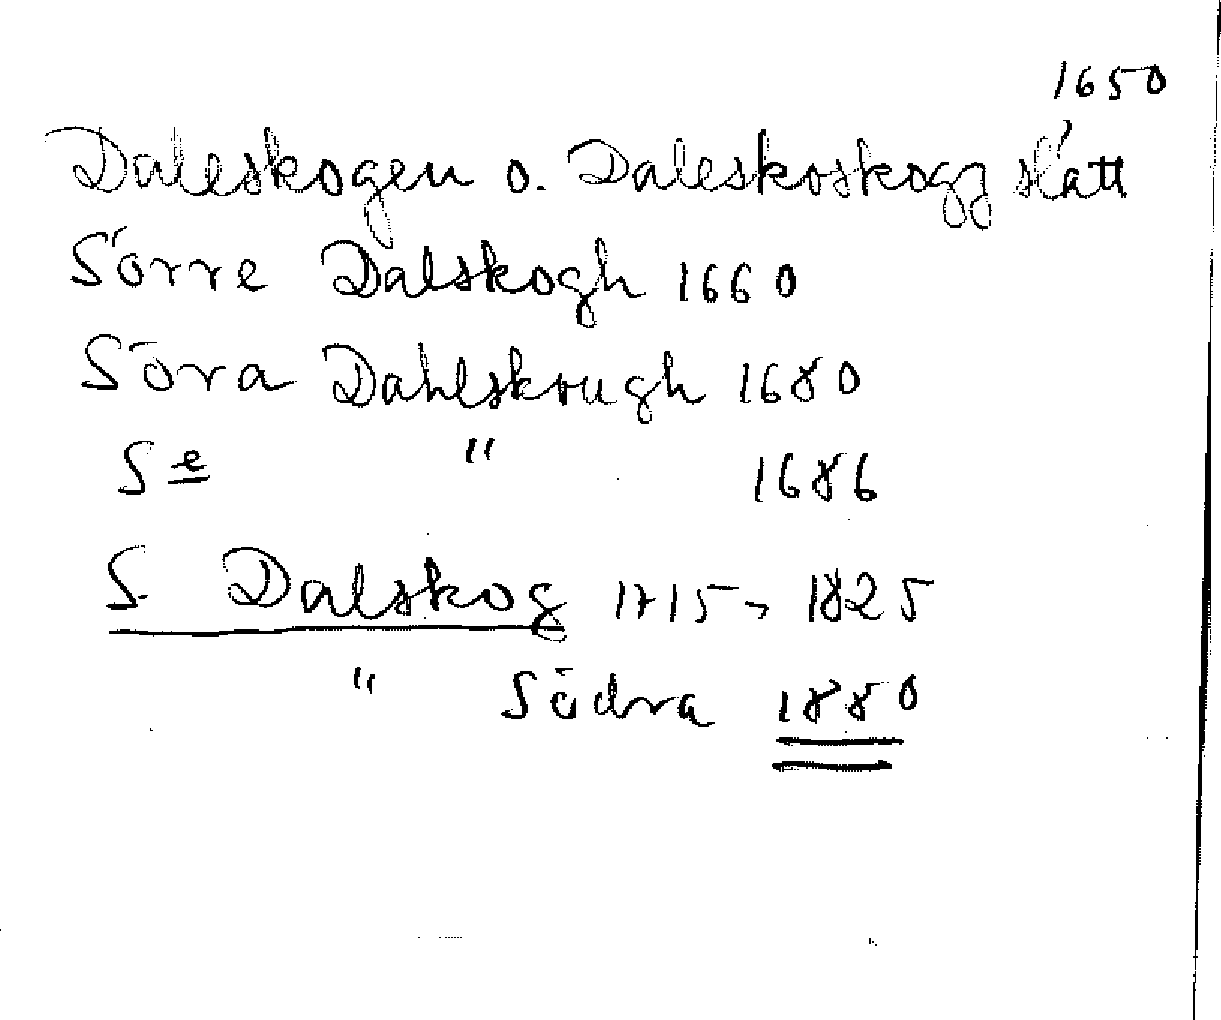 1650
Daleskogen o. Daleskoskogz slätt
Sörre Dalskogh 1660
Söra Dahlskough 1680
Se " 1686
S. Dalskog 1715, 1825
" Södra 1880